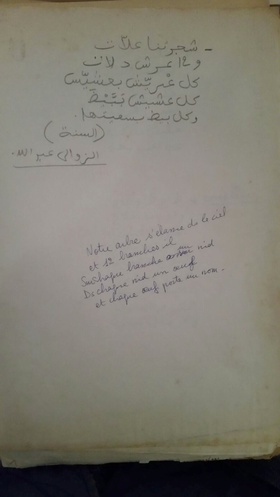 - شجرتنا علات
و 12 عرش دلات
كل عرش بعشيش
كل عشيش
وكل بيض بسميتها.
(السنة)
الزوالي عبد الله.
Notre arbre s'élance de le ciel
et 12 branches il
Sur chaque branche un nid
Ds chaque nid un œuf
et chaque œuf porte un nom.